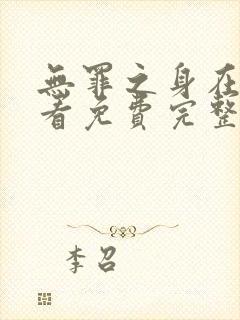 無罪之身在
看免費完整
李召